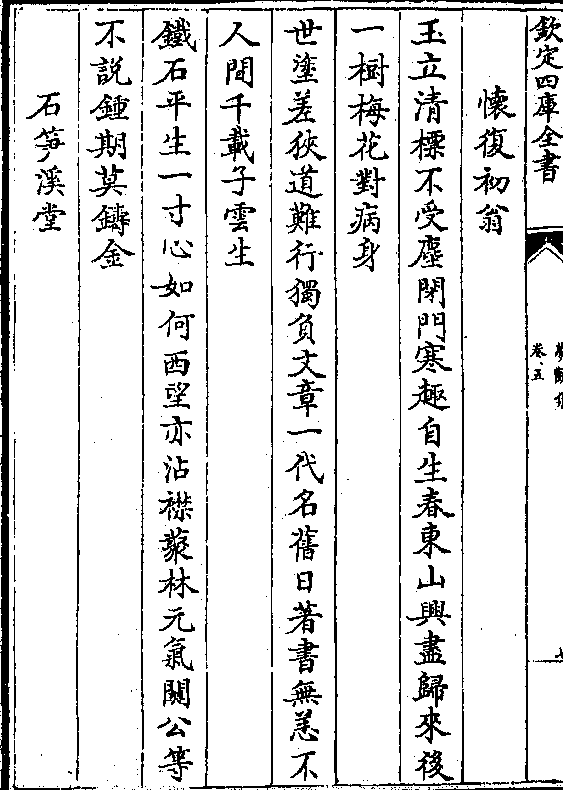 欽定四庫全書
卷五
懷復初翁
玉立清標不受塵閉門寒趣自生春東山興盡歸來後
一樹梅花對病身
世塗差狹道難行獨負文章一代名舊日著書無恙不
人間千載子雲生
鐵石平生一寸心如何西望亦沾襟藂林元氣關公等
不說鍾期莫鑄金
石筍溪堂